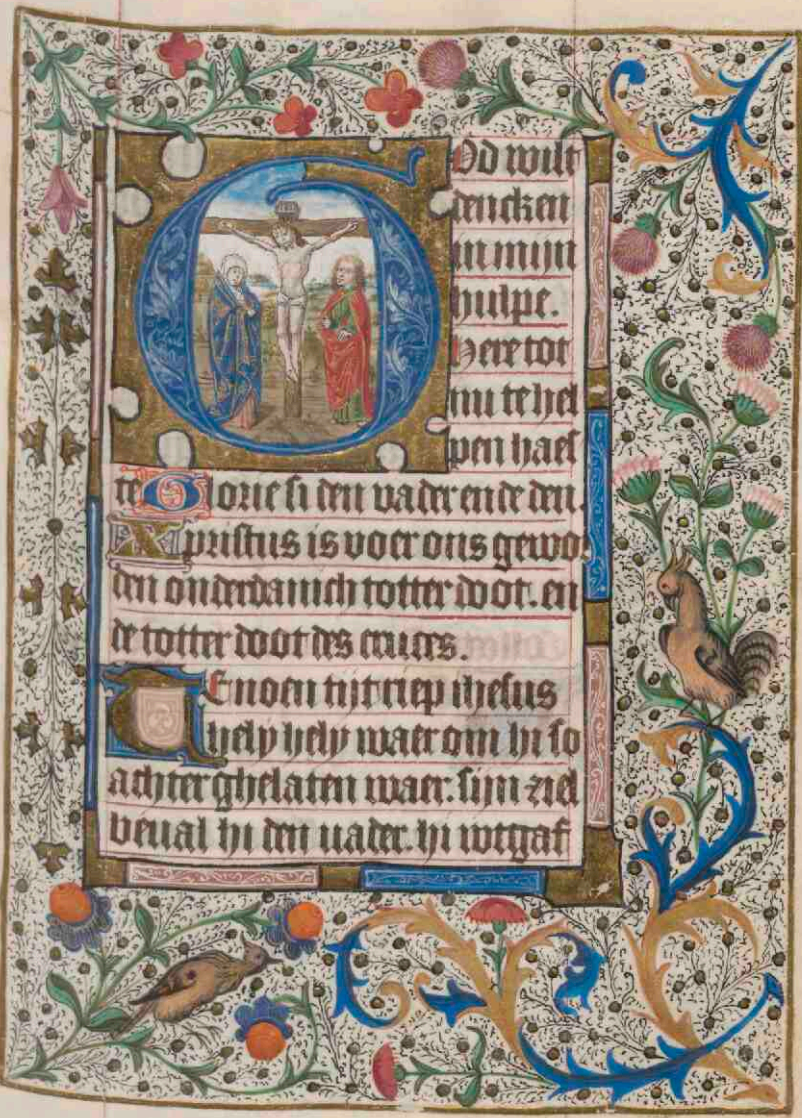 God wilt
dencken
in mijn
hulpe.
Here tot
mi te hel
pen haes
te Glorie si den vader ende den.
Xpristus is voer ons gewor
den onderdanich totter doot. en
de totter doot des cruces.
Te noen tijt riep ihesus
hely hely waer om hi so
achter ghelaten waer. sijn ziel
beual hi den vader. hi wtgaf